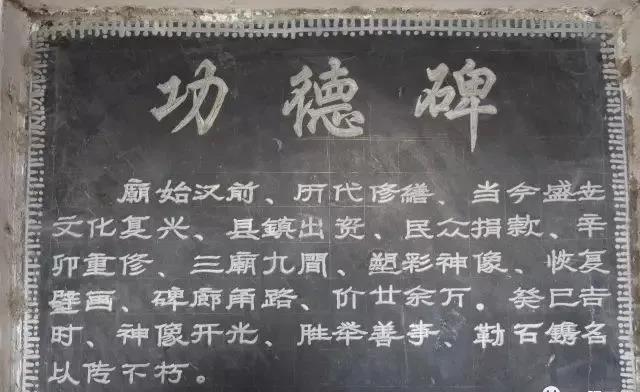 功德碑
廟始汉前、历代修繕、当今盛世
文化复兴、县鎮出资、民众捐款、辛
卯重修、三廟九間、塑彩神像、恢复
壁画、碑廊甬路、价廿余万。癸巳吉
时、神像开光、胜举善事、勒石鐫名
以传不朽。